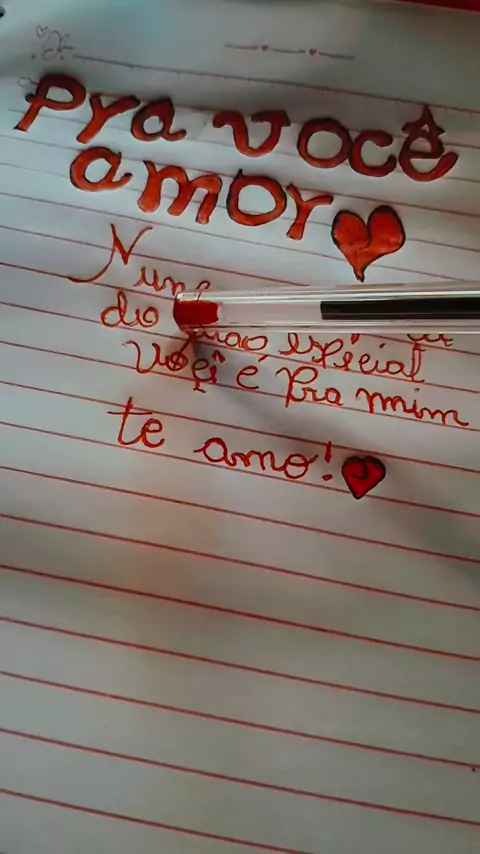 Pra você
amor
do quao especial
você é Pra mim
te amo!